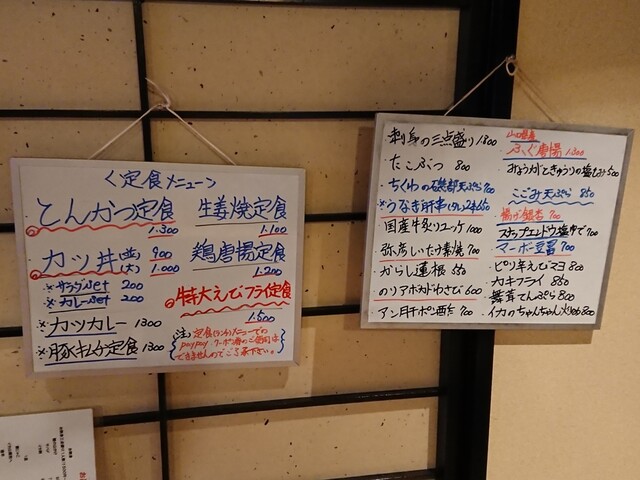 <定食メニュー>
とんかつ定食
1.300
カツ丼(並) 900
(大) 1.000
※サラダset 200
※カレーset 200
※カツカレー 1300
※豚キムチ定食 1300
生姜焼定食
1.100
鶏唐揚定食
1.200
特大えびフライ定食
1.500
注)定食(ランチ)メニューでの
paypay クーポン券のご使用は
できませんのでご了承下さい。
刺身の三点盛り 1300
たこぶつ 800
ちくわの磯部天ぷら 700
※うなぎ肝串(タレ)2本650
国産牛炙りユッケ 1000
弥彦しいたけ素焼 700
からし蓮根 550
のりアボカドわさび 600
アン肝ポン酢 700
山口県産
ふぐ唐揚 1.300
みょうがときゅうりの塩もみ 500
こごみ天ぷら 850
揚げ銀杏 700
スナップエンドウ塩ゆで 700
マーボー豆腐 700
ピリ辛えびマヨ 800
カキフライ 850
舞茸てんぷら 800
イカのちゃんちゃん焼 800